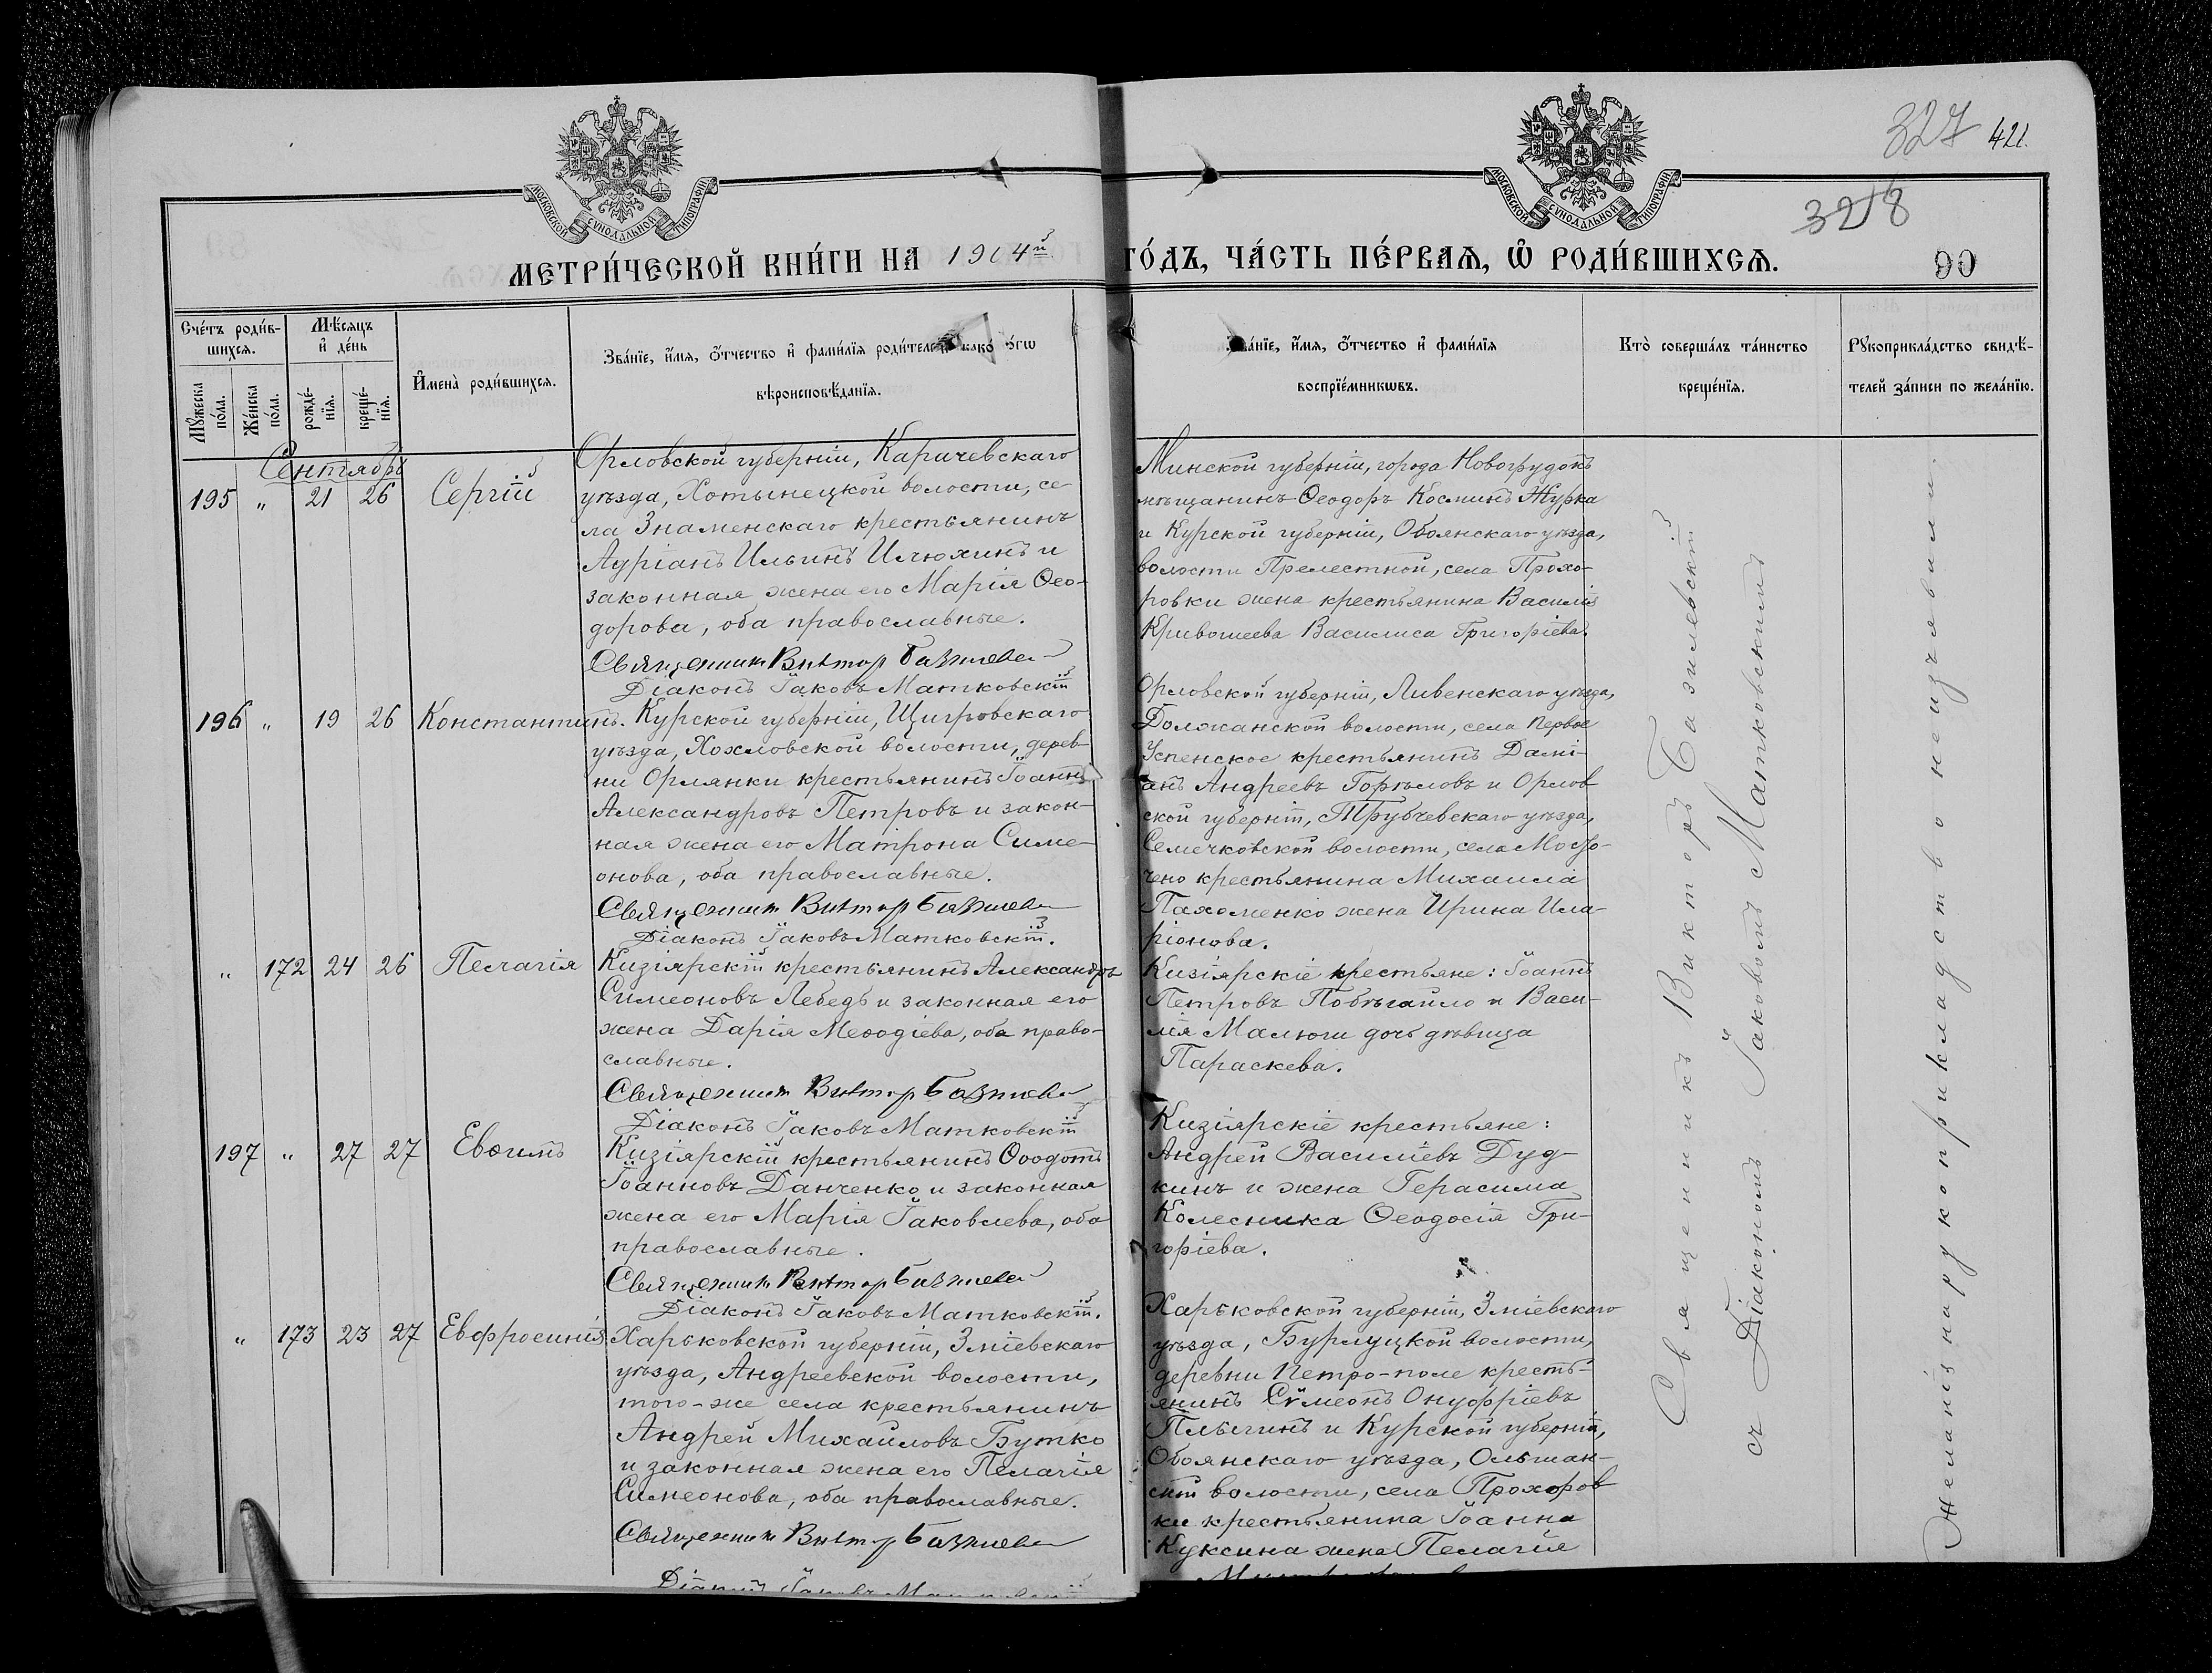 327 421.
328
90
МОСКОВСКОЙ СУНОДАЛЬНОЙ ТИПОГРАФІИ
МОСКОВСКОЙ СУНОДАЛЬНОЙ ТИПОГРАФІИ
МЕТРИ́ЧЕСКОЙ КНИ́ГИ НА 1904й ГО́ДЪ, ЧА́СТЬ ПЕ́РВАѦ, Ѡ҆ РОДИ́ВШИХСѦ.
Сче́тъ роди́в-
шихсѧ.
Мꙋ́жеска по́ла.
Же́нска по́ла.
Мѣ́сѧцъ
и҆ де́нь
рожде́-
нїѧ.
креще́-
нїѧ.
И҆мена̀ роди́вшихсѧ.
Зва́нїе, и҆́мѧ, ѻ҆́тчество и҆ фами́лїѧ роди́телей
вѣроисповѣ́данїѧ.
Зва́нїе, и҆́мѧ, ѻ҆́тчество и҆ фами́лїѧ
воспрїе́мникѡвъ.
Кто̀ соверша́лъ та́инство
креще́нїѧ.
Рꙋкоприкла́дство свидѣ́-
телей за́писи по жела́нїю.
Сентябрь
195 " 21 26 Сергій
Орловской губерніи, Карачевскаго
уѣзда, Хотынецкой волости, се
ла Знаменскаго крестьянинъ
Ауріанъ Ильинъ Илюхинъ и
законная жена его Марія Ѳео-
дорова, оба православные.
Священникъ Викторъ Базилев
Діаконъ Іаковъ Матковскій
Минской губерніи, города Новогрудокъ
мѣщанинъ Ѳеодоръ Косминъ Журка
и Курской губерніи, Обоянскаго уѣзда,
волости Прелестной, села Прохо-
ровки жена крестьянина Василія
Кривошеева Василиса Григоріева.
196 " 19 26 Константинъ.
Курской губерніи, Щигровскаго
уѣзда, Хохловской волости, дерев-
ни Орлянки крестьянинъ Іоаннъ
Александровъ Петровъ и закон-
ная жена его Матрона Симе-
онова, оба православные.
Священникъ Викторъ Базилев
Діаконъ Іаковъ Матковскій.
Орловской губерніи, Ливенскаго уѣзда,
Должанской волости, села Первое
Успенское крестьянинъ Дамі-
анъ Андреевъ Горѣловъ и Орлов
ской губерніи, Трубчевскаго уѣзда,
Семечковской волости, села
крестьянина Михаила
Пахоменко жена Ирина Ила-
ріонова.
" 172 24 26 Пелагія
Кизіярскій крестьянинъ Александръ
Симеоновъ Лебедь и законная его
жена Дарія Меѳодіева, оба право-
славные.
Священникъ Викторъ Базилев
Діаконъ Іаковъ Матковскій
Кизіярскіе крестьяне: Іоаннъ
Петровъ Побѣгайло и Васи-
лія Малюги дочь дѣвица
Параскева.
197 " 27 27 Евѳимъ
Кизіярскій крестьянинъ Ѳеодотъ
Іоанновъ Данченко и законная
жена его Марія Іаковлева, оба
православные.
Священникъ Викторъ Базилев
Діаконъ Іаковъ Матковскій.
Кизіярскіе крестьяне:
Андрей Василіевъ Дуд-
кинъ и жена Герасима
Колесника Ѳеодосія Гри-
горіева.
" 173 23 27 Евфросинія
Харьковской губерніи, Зміевскаго
уѣзда, Андреевской волости,
того-же села крестьянинъ
Андрей Михайловъ Бутко
и законная жена его Пелагія
Симеонова, оба православные.
Священникъ Викторъ Базилев
Діаконъ Іаковъ Матковскій
Харьковской губерніи, Зміевскаго
уѣзда, Бурлуцкой волости,
деревни Петро-поле кресть-
янинъ Сѵмеонъ Онуфріевъ
Плыгинъ и Курской губерніи,
Обоянскаго уѣзда, Ольшан-
ской волости, села Прохоров
ки крестьянина Іоанна
Куксина жена Пелагія
Священникъ Викторъ Базилевскій
съ Діакономъ Іаковомъ Матковскимъ
Желанія на рукоприкладство не изъявили.